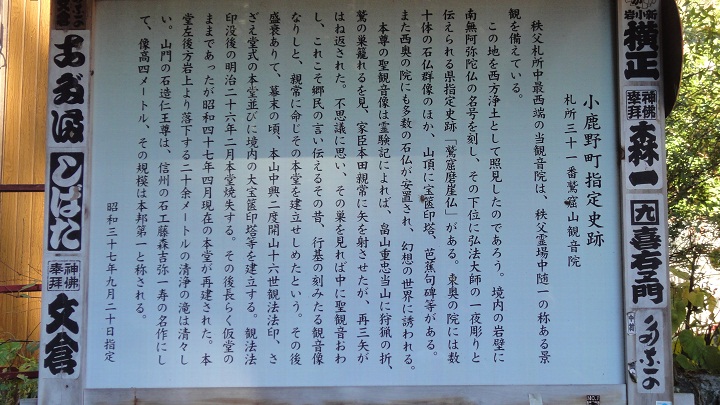 小鹿野町指定史跡
札所三十一番鷲窟山観音院
秩父札所中最西端の当観音院は、秩父霊場中随一の称ある景
観を備えている。
この地を西方浄土として照見したのであろう。境内の岩壁に
南無阿弥陀仏の名号を刻し、その下位に弘法大師の一夜彫りと
伝えられる県指定史跡「鷲窟磨崖仏」がある。東奥の院には数
十体の石仏群像のほか、山頂に宝篋印塔、芭蕉句碑等がある。
また西奥の院にも多数の石仏が安置され、幻想の世界に誘われる。
本尊の聖観音像は霊験記によれば、畠山重忠当山に狩猟の折、
鷲の巣籠れるを見、家臣本田親常に矢を射させたが、再三矢が
はね返された。不思議に思い、その巣を見れば中に聖観音おわ
し、これこそ郷民の言い伝えるその昔、行基の刻みたる観音像
なりしと、親常に命じその本堂を建立せしめたという。その後
盛衰ありて、幕末の頃、本山中興二度開山十六世観法法印、さ
ざえ堂式の本堂並びに境内の大宝篋印塔等を建立する。観法法
印没後の明治二十六年二月本堂焼失する。その後長らく仮堂の
ままであったが昭和四十七年四月現在の本堂が再建された。本
堂左後方岩上より落下する二十余メートルの清浄の滝は清々し
い。山門の石造仁王尊は、信州の石工藤森吉弥一寿の名作にし
て、像高四メートル、その規模は本邦第一と称される。
昭和三十七年九月二十日指定
小新
岩
横正
神佛
奉拝
森一
九
喜右エ門
文倉
しばた
神佛
奉拝
文倉